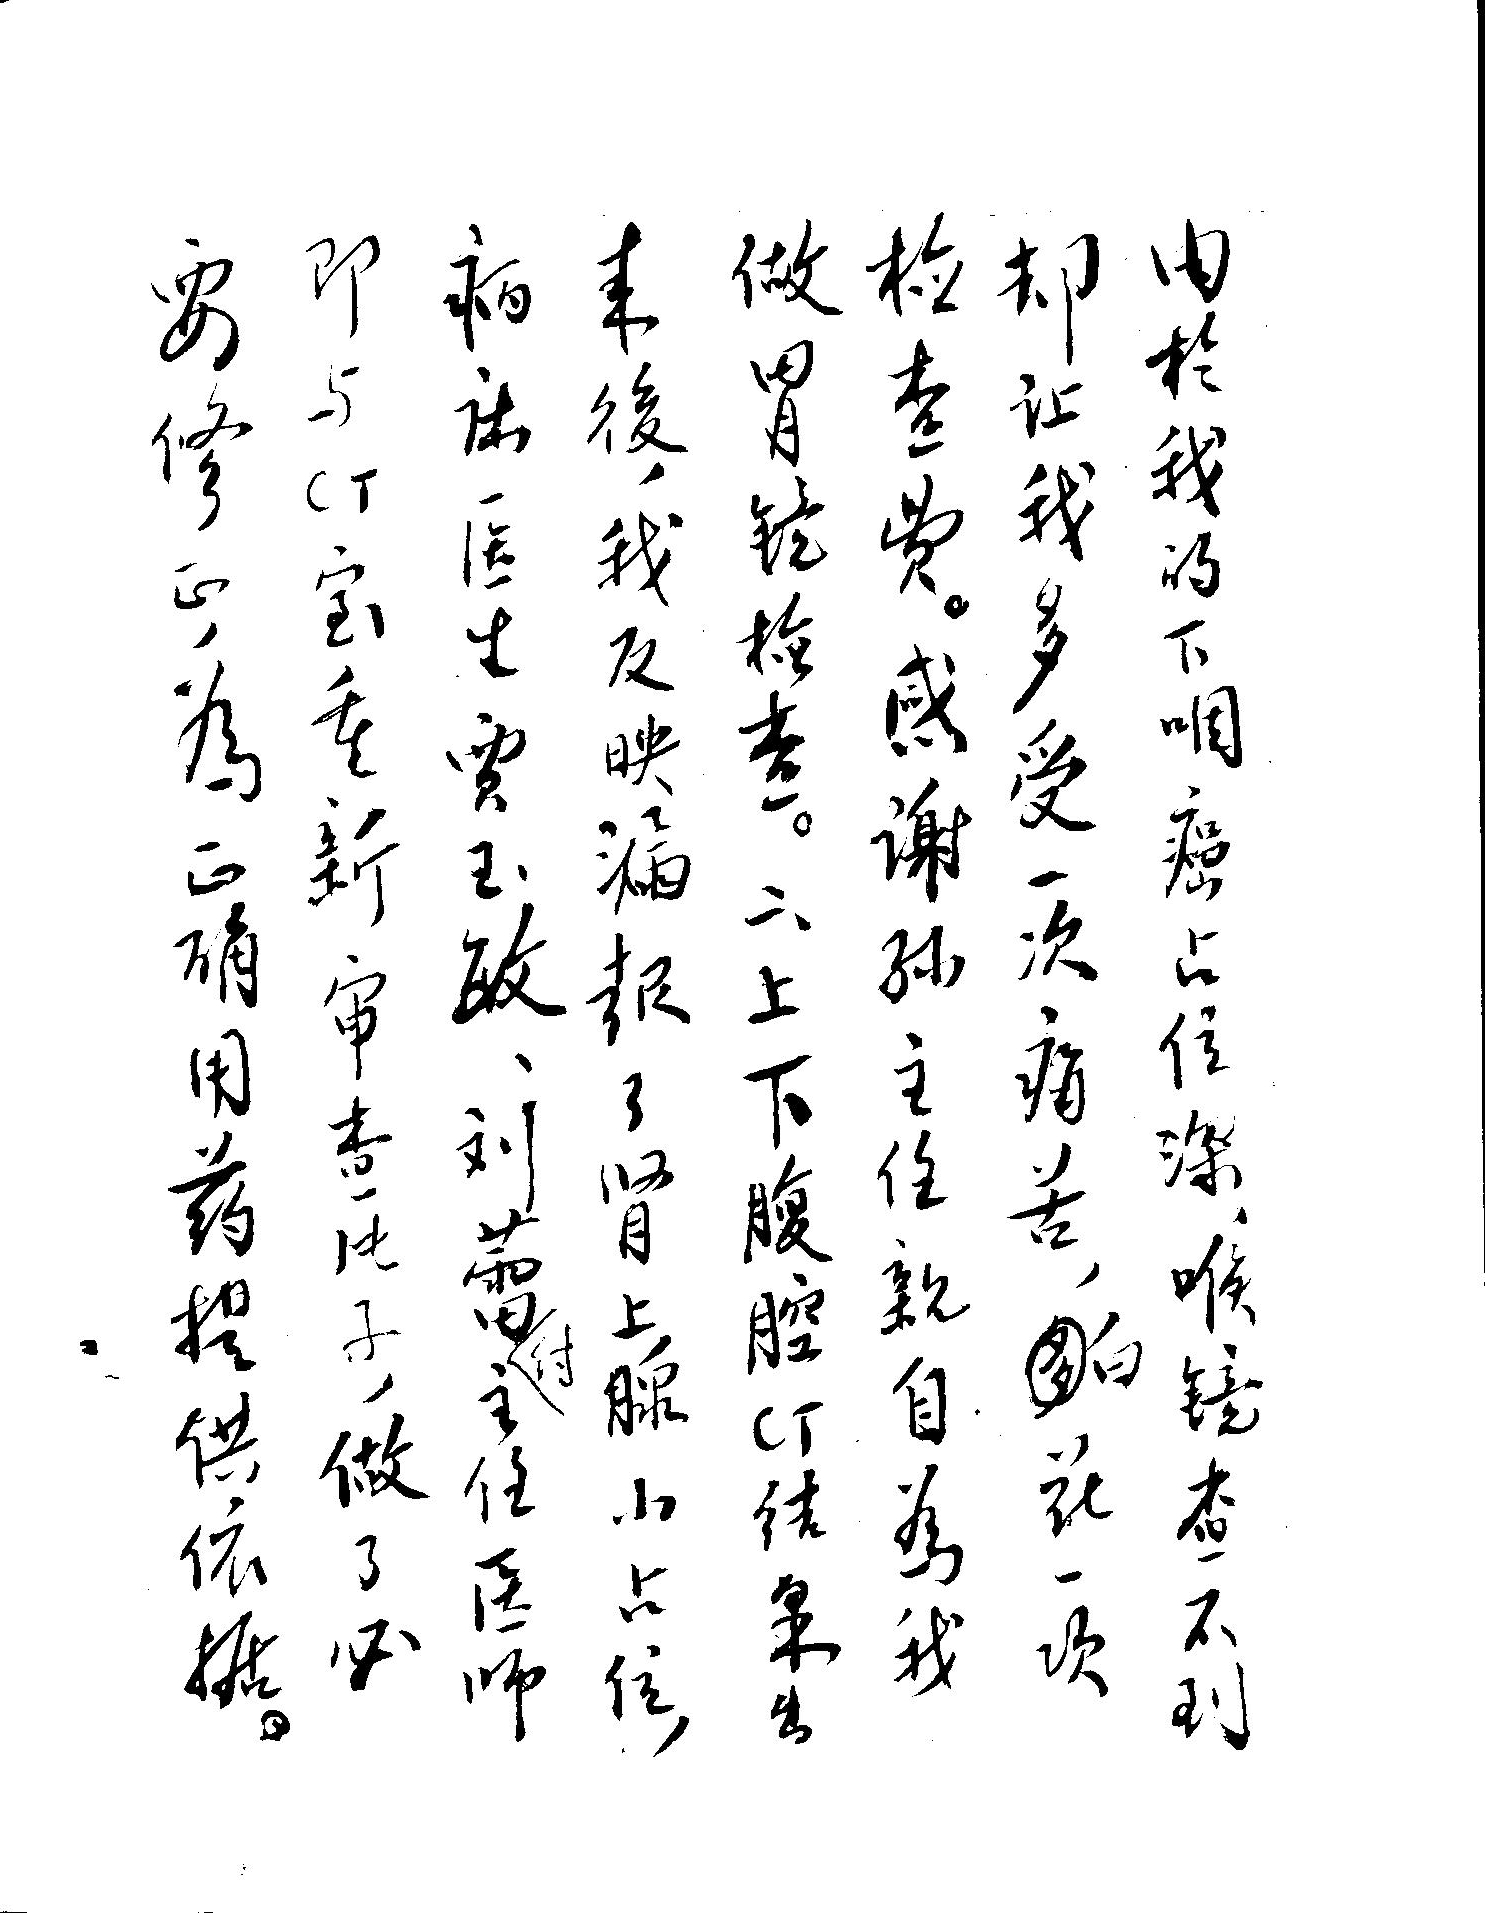 由於我的下咽癌占位深，喉镜查不到
却让我多受一次痛苦，白花一项
检查费。感谢孙主任親自為我
做胃镜检查。二、上下腹腔CT结果出
来後，我反映漏報了肾上腺小占位，
病床医生贾玉敏、刘蕾付主任医师
即与CT室重新审查片子，做了必
要修正，為正确用药提供依據。